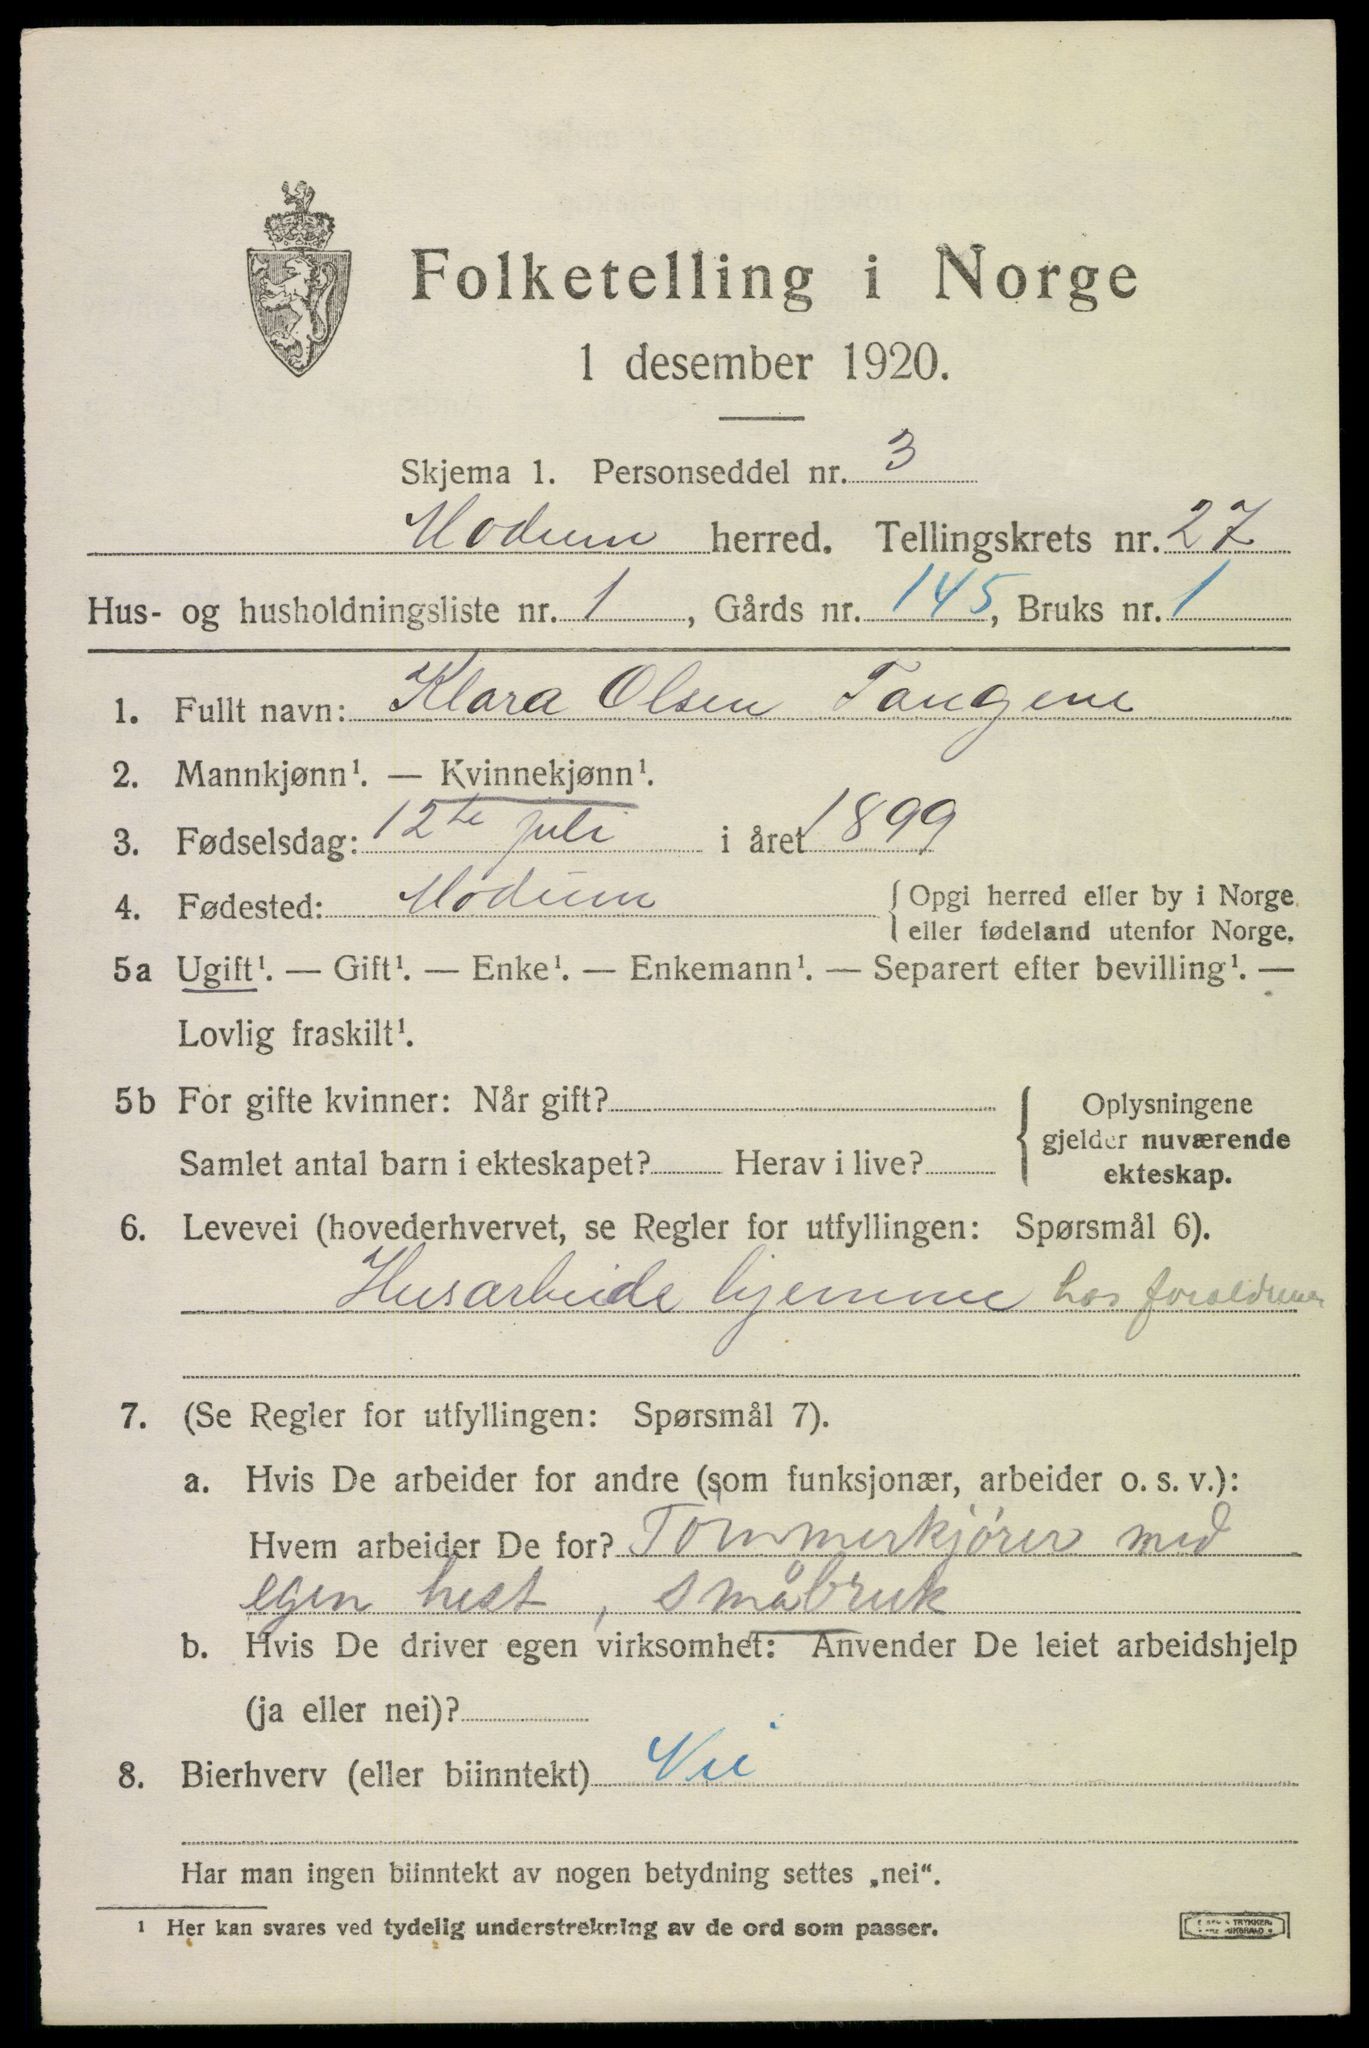 Folketelling i Norge
1 desember 1920.
Skjema 1. Personseddel nr. 3
Modum herred. Tellingskrets nr. 27
Hus- og husholdningsliste nr. 1, Gårds nr. 145, Bruks nr. 1
1. Fullt navn: Klara Olsen Tangene
2. Mannkjønn¹. — Kvinnekjønn¹.
3. Fødselsdag: 12te juli i året 1899
4. Fødested: Modum { Opgi herred eller by i Norge
eller fødeland utenfor Norge.
5a Ugift¹. — Gift¹. — Enke¹. — Enkemann¹. — Separert efter bevilling¹. —
Lovlig fraskilt¹.
5b For gifte kvinner: Når gift?
Samlet antal barn i ekteskapet? Herav i live?
{ Oplysningene
gjelder nuværende
ekteskap.
6. Levevei (hovederhvervet, se Regler for utfyllingen: Spørsmål 6).
Husarbeide hjemme hos foraldrene
7. (Se Regler for utfyllingen: Spørsmål 7).
a. Hvis De arbeider for andre (som funksjonær, arbeider o. s. v.):
Hvem arbeider De for? Tömmerkjörer med
egen hest, småbruk
b. Hvis De driver egen virksomhet: Anvender De leiet arbeidshjelp
(ja eller nei)?
8. Bierhverv (eller biinntekt) Nei
Har man ingen biinntekt av nogen betydning settes „nei“.
¹ Her kan svares ved tydelig understrekning av de ord som passer.